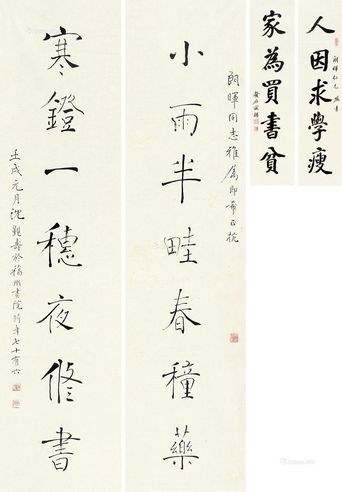 小雨半畦春種藥
朗暉同志雅屬即希正抗
寒鐙一穗夜修書
壬戌元月沈覲壽於福州書院時年七十有六
人因求學瘦
家為買書貧